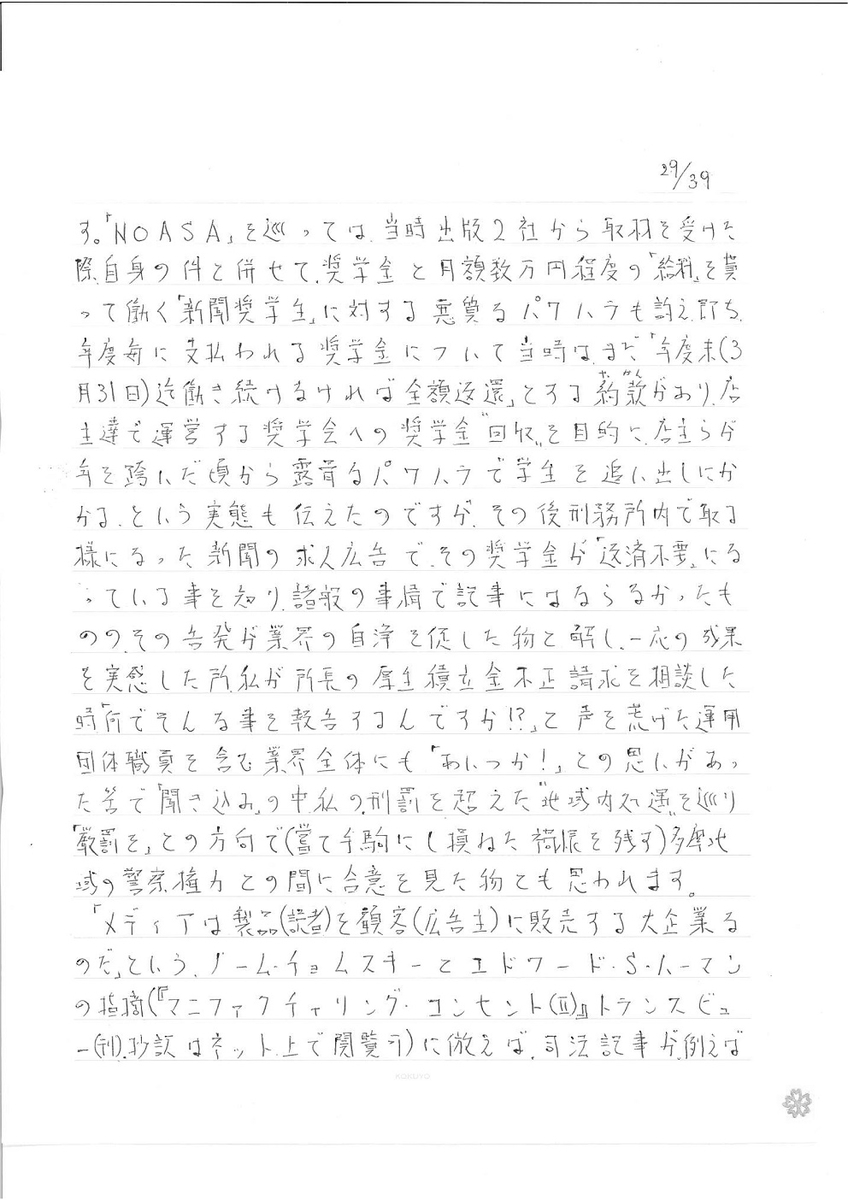 29/39
す。「NOASA」を巡っては、当時出版2社から取材を受けた
際、自身の件と併せて、奨学金と月額数万円程度の「給料」を貰
って働く「新聞奨学生」に対する悪質なパワハラも訴え、即ち、
年度毎に支払われる奨学金について当時はまだ「年度末(3
月31日)迄働き続けなければ全額返還」とする約款があり、店
主達で運営する奨学会への奨学金“回収”を目的に、店主らが
年を跨いだ頃から露骨なパワハラで学生を追い出しにか
かる、という実態も伝えたのですが、その後刑務所内で取る
様になった新聞の求人広告で、その奨学金が「返済不要」にな
っている事を知り、諸般の事情で記事にはならなかったも
のの、その告発が業界の自浄を促した物と解し、一応の成果
を実感した所、私が所長の厚生積立金不正請求を相談した
時「何でそんな事を報告するんですか!?」と声を荒げた運用
団体職員を含む業界全体にも「あいつか!」との思いがあっ
た筈で「聞き込み」の中、私の刑罰を超えた“地域内処遇”を巡り
「厳罰を」との方向で(嘗て手駒にし損ねた禍根を残す)多摩地
域の警察権力との間に合意を見た物とも思われます。
「メディアは製品(読者)を顧客(広告主)に販売する大企業な
のだ」という、ノーム・チョムスキーとエドワード・S・ハーマン
の指摘(『マニファクチャリング・コンセント(Ⅱ)』トランスビュ
ー(刊)、抄訳はネット上で閲覧可)に倣えば、司法記事が、例えば
KOKUYO